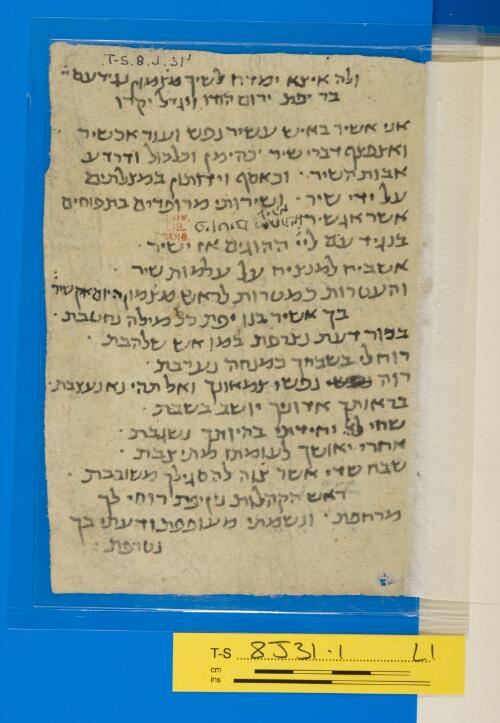 T-S.8.J.31¹
ולה איצא ימדח לשיך מצמון נגיד עם
בר יפת ירום הודו ויגדל יקרו
אני אשיר באיש עשיר נפש ועוד אכשיר
ואצפצף דברי שיר כהימן וכלכול ודרדע
אבות השיר · וכאסף וידותון במצלתים
על ידי שיר · ושירותי מרופדים בתפוחים
אשר אגשיר
כנגיד עם ליי ההוגים אז ישיר ·
אשביח למנצח על עלמות שיר ·
והעטרות כמטרות לראש מצמון היום אקשיר
בך אשיר בנו יפת כל מילה נחשבת ·
בכור דעת נצרפת כמו אש שלהבת ·
רוח לי בשבחך כמנחה נערבת ·
רוה נפשי צמאונך ואל תהי נא נעצבת ·
בראותך אדוניך יושב בשבת ·
שחי לי יחידתי בהיותך נשגבת ·
אחרי יאושך לעומתו מתיצבת ·
שבח שדי אשר צוה להסגילך משובבת ·
ראש הקהלות ניזיפת רוחי לך
מרחפת · ונשמתי מעופפת ודעתי בך
נטרפת ·
T-S 8J31.1 L1
cm
ins